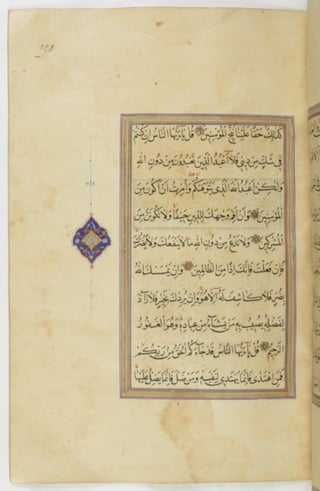 كذلك حقا علينا ننج المؤمنين قل ياايها الناس ان كنتم
في شك من ديني فلا اعبد الذين تعبدون من دون الله
ولكن اعبد الله الذي يتوفيكم وامرت ان اكون من
المؤمنين وان اقم وجهك للدين حنيفا ولا تكونن من
المشركين ولا تدع من دون الله ما لا ينفعك ولا يضرك
فان فعلت فانك اذا من الظالمين وان يمسسك الله
بضر فلا كاشف له الا هو وان يردك بخير فلا راد
لفضله يصيب به من يشاء من عباده وهو الغفور
الرحيم قل ياايها الناس قد جاءكم الحق من ربكم
فمن اهتدى فانما يهتدي لنفسه ومن ضل فانما يضل عليها